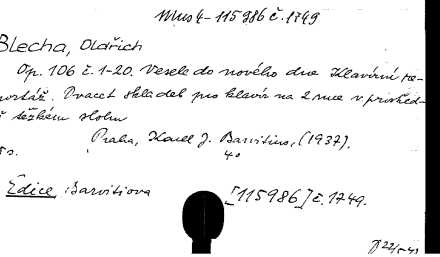 Mus4-115986 č.1749
Blecha, Oldřich
Op. 106 č.1-20. Vesele do nového dne Klavírní re-
portáž. Dvacet skladeb pro klavír na 2 ruce v prostřed-
ě těžkém slohu
Praha, Karel J. Barvitius, (1937).
4°
5 s.
Edice Barvitiova
[115986] č.1749.